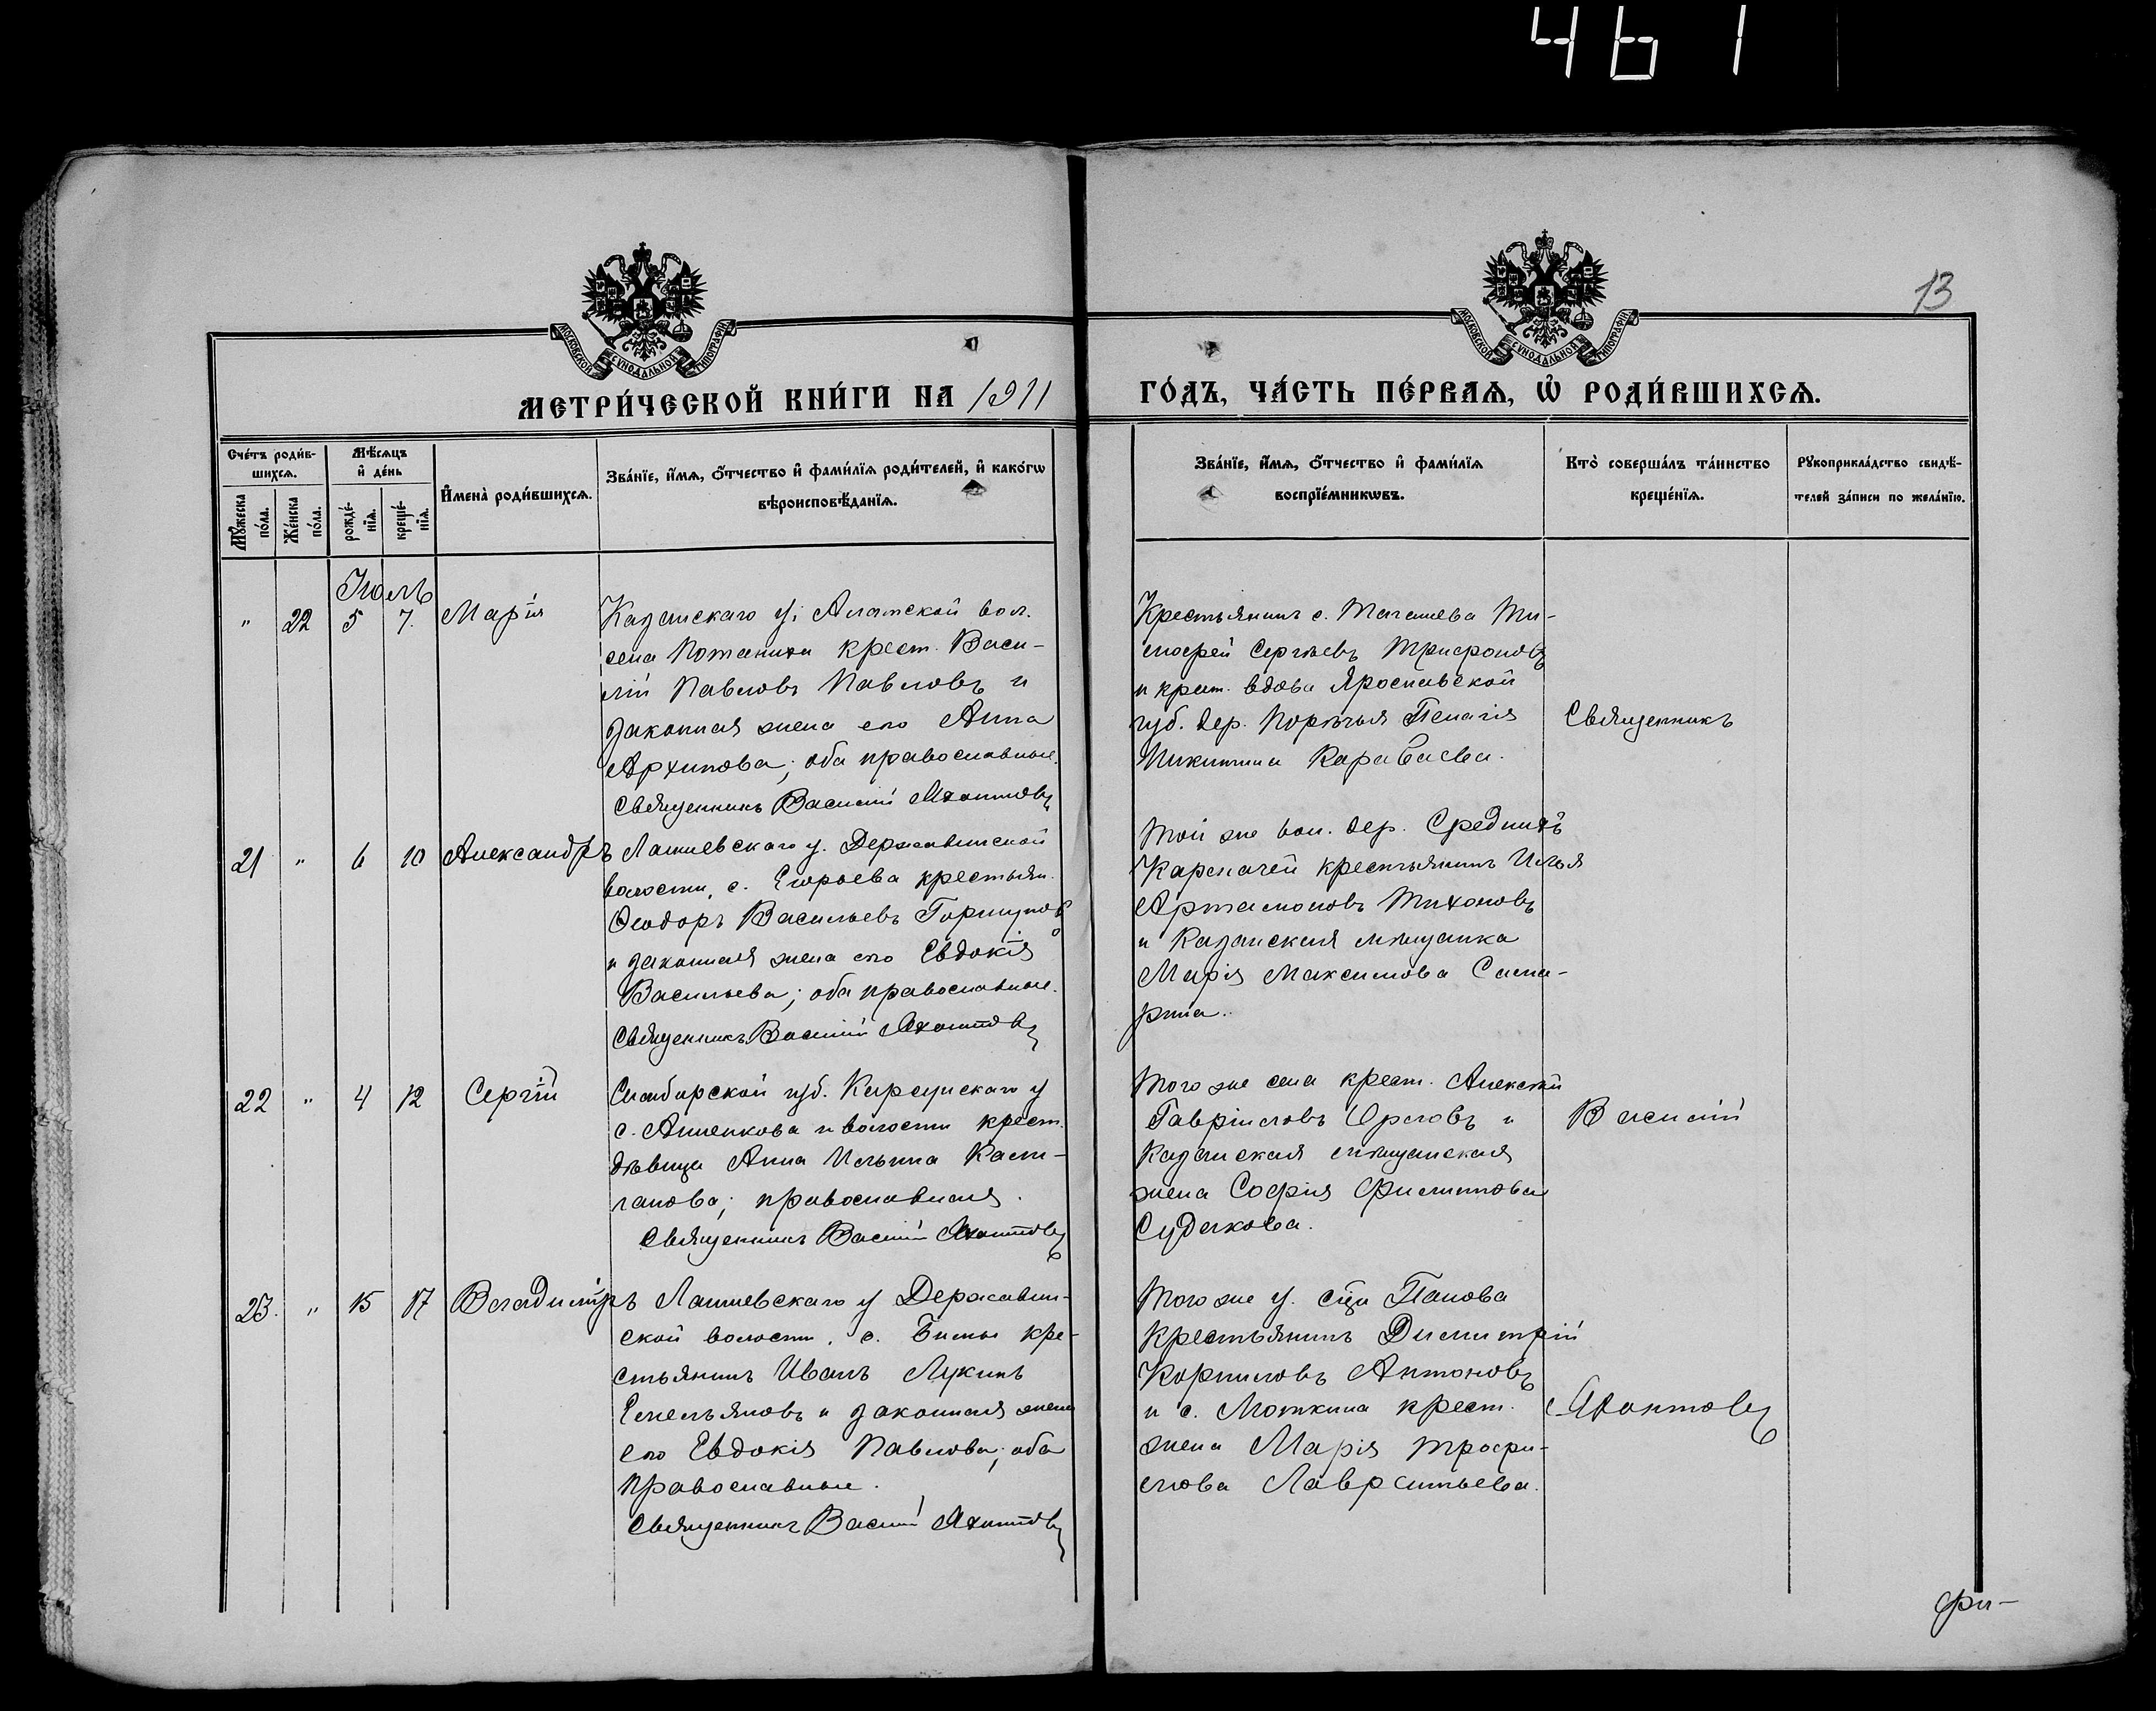 461
13
МОСКОВСКОЙ СѴНОДАЛЬНОЙ ТИПОГРАФІИ
МОСКОВСКОЙ СѴНОДАЛЬНОЙ ТИПОГРАФІИ
МЕТРИ́ЧЕСКОЙ КНИ́ГИ НА 1911
ГО́ДЪ, ЧА́СТЬ ПЕ́РВАѦ, Ѽ РОДИ́ВШИХСѦ.
Сче́тъ роди́в-
шихсѧ.
Мꙋ́жеска
по́ла.
Же́нска
по́ла.
Мѣ́сѧцъ
и҆ де́нь
рожде́-
нїѧ.
креще́-
нїѧ.
И҆мена̀ роди́вшихсѧ.
Зва́нїе, и҆́мѧ, ѻ҆́тчество и҆ фами́лїѧ роди́телей, и҆ како́гѡ
вѣроисповѣ́данїѧ.
Зва́нїе, и҆́мѧ, ѻ҆́тчество и҆ фами́лїѧ
воспрїе́мникѡвъ.
Кто̀ соверша́лъ та́инство
креще́нїѧ.
Рꙋкоприкла́дство свидѣ́-
телей за́писи по жела́нїю.
Іюль
" 22 5 7. Марія
Казанскаго у; Алатской вол.
села Потанихи крест. Васи-
лій Павловъ Павловъ и
законная жена его Анна
Архипова; оба православные.
Священникъ Василій Яхонтовъ
Крестьянинъ с. Тагашева Ти-
мофей Сергѣевъ Трифоновъ
и крест. вдова Ярославской
губ. дер. Порѣчья Пелагія
Никитина Караваева.
Священникъ
21 " 6 10 Александръ
Лаишевскаго у. Державинской
волости, с. Егорьева крестьян.
Ѳеодоръ Васильевъ Горшуновъ
и законная жена его Евдокія
Васильева; оба православные.
Священникъ Василій Яхонтовъ
Той же вол. дер. Среднихъ
Кармачей крестьянинъ Илья
Артамоновъ Тихоновъ
и Казанская мѣщанка
Марія Максимова Сама-
рина.
22 " 4 12 Сергій
Симбирской губ. Карсунскаго у
с. Анненкова и волости крест.
дѣвица Анна Ильина Касти-
ганова; православная.
Священникъ Василій Яхонтовъ
Того же села крест. Алексѣй
Гавріиловъ Орловъ и
Казанская мѣщанская
жена Софія Филиппова
Судакова.
Василій
23. " 15 17 Владиміръ
Лаишевскаго у Державин-
ской волости, с. Бимы кре-
стьянинъ Иванъ Лукинъ
Емельяновъ и законная жена
его Евдокія Павлова; оба
православные.
Священникъ Василій Яхонтовъ
Того же у. сца Панова
крестьянинъ Димитрій
Корниловъ Антоновъ
и с. Моткина крест.
жена Марія Трофи-
мова Лаврентьева.
Яхонтовъ
фи-